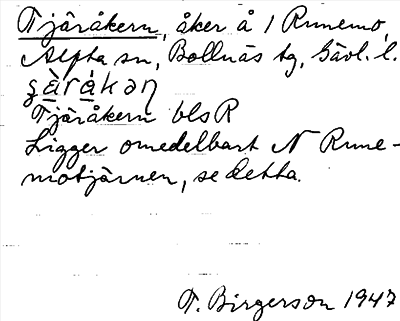 Tjäråkern, åker å 1 Runemo,
Alfta sn, Bollnäs tg, Gävl. l.
Tjäråkern bls R
Ligger omedelbart N Rune-
motjärnen, se detta.
T. Birgerson 1947